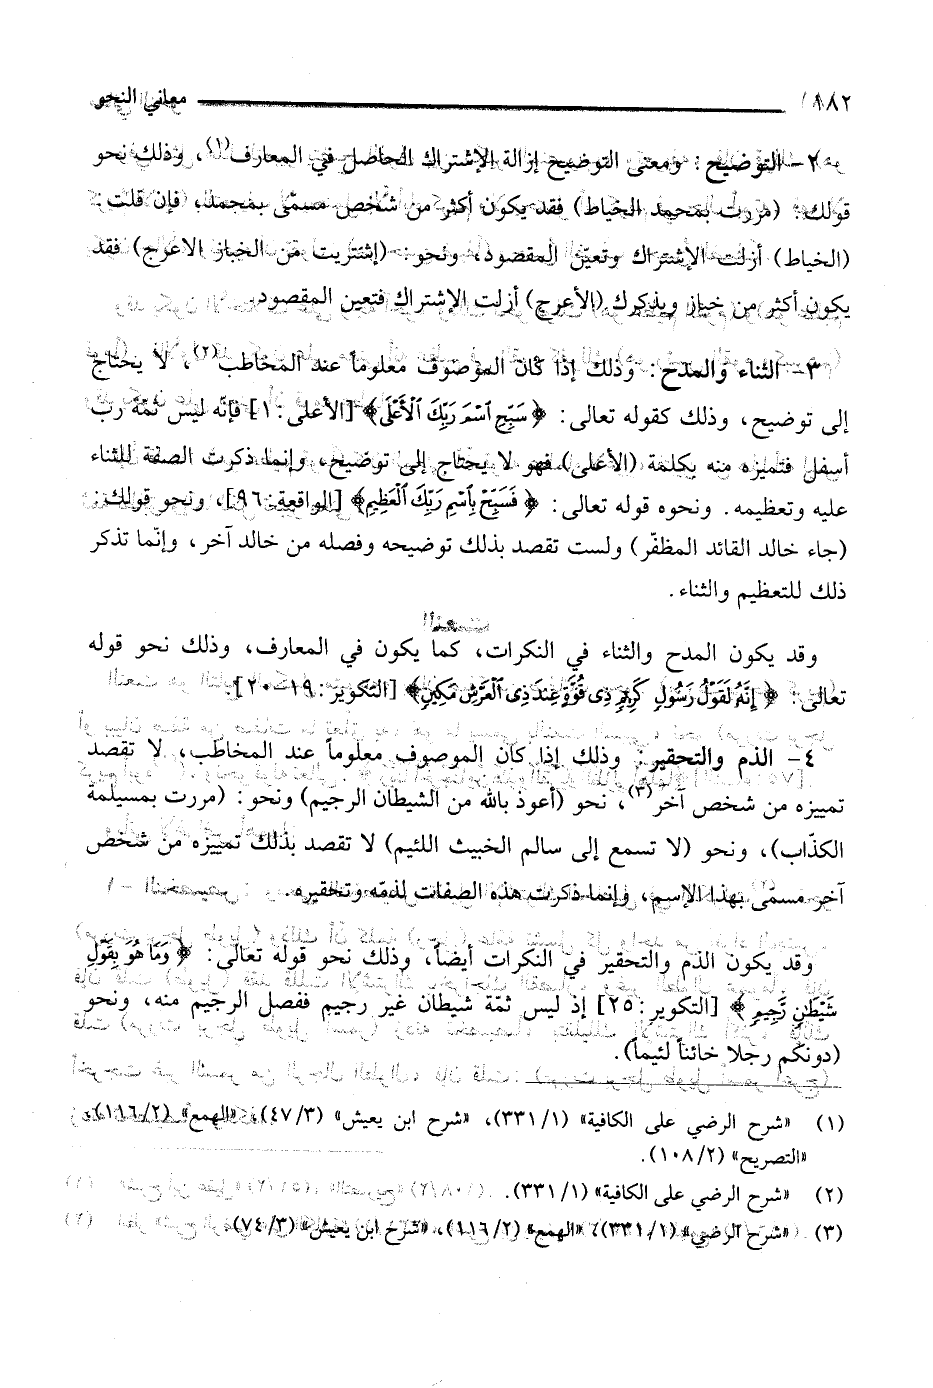 ١٨٢ معاني النحو
٢- التوضيح: ومعنى التوضيح إزالة الإشتراك الحاصل في المعارف(١)، وذلك نحو
قولك: (مررت بمحمد الخياط) فقد يكون أكثر من شخص مسمّى بمحمد، فإن قلت:
(الخياط) أزلت الإشتراك وتعيّن المقصود، ونحو: (إشتريت من الخباز الاعرج) فقد
يكون أكثر من خباز وبذكرك (الأعرج) أزلت الإشتراك فتعين المقصود.
٣- الثناء والمدح: وذلك إذا كان الموصوف معلوماً عند المخاطب(٢)، لا يحتاج
إلى توضيح، وذلك كقوله تعالى: ﴿سَبِّحِ ٱسْمَ رَبِّكَ ٱلْأَعْلَى﴾ [الأعلى: ١] فإنّه ليس ثمّة رب
أسفل فتميزه منه بكلمة (الأعلى) فهو لا يحتاج إلى توضيح، وإنما ذكرت الصفة للثناء
عليه وتعظيمه. ونحوه قوله تعالى: ﴿فَسَبِّحْ بِٱسْمِ رَبِّكَ ٱلْعَظِيمِ﴾ [الواقعة: ٩٦]، ونحو قولك:
(جاء خالد القائد المظفّر) ولست تقصد بذلك توضيحه وفصله من خالد آخر، وإنّما تذكر
ذلك للتعظيم والثناء.
وقد يكون المدح والثناء في النكرات، كما يكون في المعارف، وذلك نحو قوله
تعالى: ﴿إِنَّهُ لَقَوْلُ رَسُولٍ كَرِيمٍ ذِى قُوَّةٍ عِندَ ذِى ٱلْعَرْشِ مَكِينٍ﴾ [التكوير: ١٩-٢٠].
٤- الذم والتحقير: وذلك إذا كان الموصوف معلوماً عند المخاطب، لا تقصد
تمييزه من شخص آخر(٣)، نحو (أعوذ بالله من الشيطان الرجيم) ونحو: (مررت بمسيلمة
الكذّاب)، ونحو (لا تسمع إلى سالم الخبيث اللئيم) لا تقصد بذلك تمييزه من شخص
آخر مسمّى بهذا الإسم، وإنما ذكرت هذه الصفات لذمّه وتحقيره.
وقد يكون الذم والتحقير في النكرات أيضاً، وذلك نحو قوله تعالى: ﴿وَمَا هُوَ بِقَوْلِ
شَيْطَٰنٍ رَّجِيمٍ﴾ [التكوير: ٢٥] إذ ليس ثمّة شيطان غير رجيم ففصل الرجيم منه، ونحو
(دونكم رجلا خائناً لئيماً).
(١) «شرح الرضي على الكافية» (١/ ٣٣١)، «شرح ابن يعيش» (٣/ ٤٧)، «الهمع» (٢/ ١١٦)،
«التصريح» (٢/ ١٠٨).
(٢) «شرح الرضي على الكافية» (١/ ٣٣١).
(٣) «شرح الرضي» (١/ ٣٣١)، «الهمع» (٢/ ١١٦)، «شرح ابن يعيش» (٣/ ٧٤).